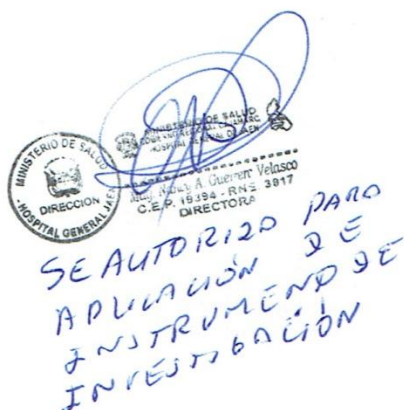 MINISTERIO DE SALUD
DIRECCION
HOSPITAL GENERAL JAEN
MINISTERIO DE SALUD
HOSPITAL GENERAL DE JAEN
A. Guerrero Velasco
C.E.P. 19394 - RNE 3917
DIRECTORA
SE AUTORIZO PARA
APLICACIÓN DE
INSTRUMENO DE
INVESTIGACIÓN